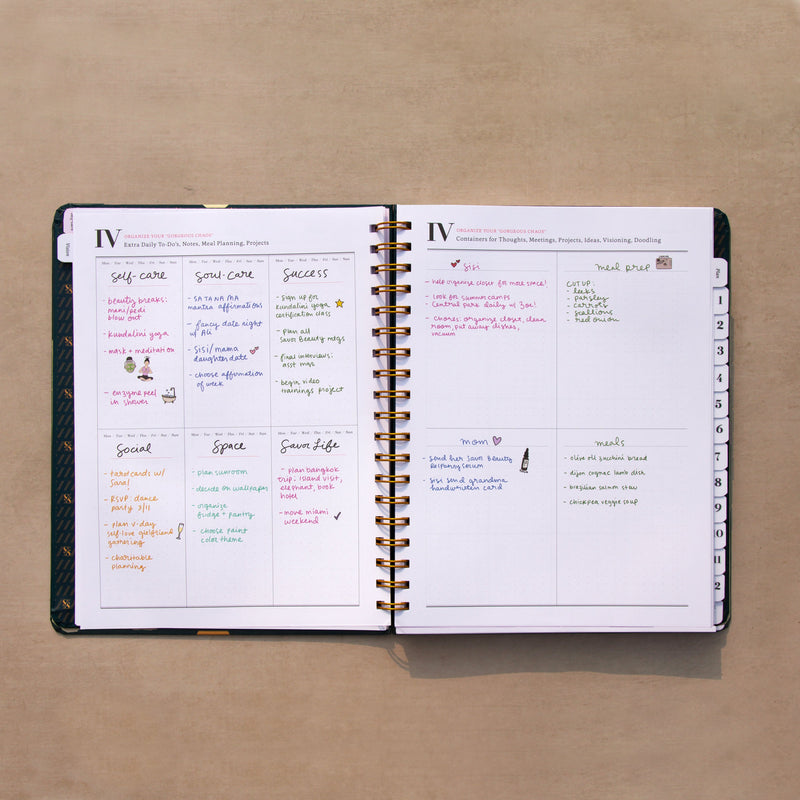 IV
ORGANIZE YOUR "GORGEOUS CHAOS"
Extra Daily To-Do's, Notes, Meal Planning, Projects
Mon Tue Wed Thu Fri Sat Sun
Self-care
- beauty breaks:
mani/pedi
blow out
- kundalini yoga
- mask + meditation
- enzyme peel
in shower
Mon Tue Wed Thu Fri Sat Sun
Soul-care
- SATANAMA
mantra affirmations
- fancy date night
w/ Ali
- Sisi/mama
daughter date
- choose affirmation
of week
Mon Tue Wed Thu Fri Sat Sun
Success
- sign up for
kundalini yoga
certification class
- plan all
Savor Beauty mtgs
- final interviews:
asst mgs
- begin video
trainings project
Mon Tue Wed Thu Fri Sat Sun
Social
- tarot cards w/
Sara!
- RSVP: dance
party 3/11
- plan v-day
self-love girlfriend
gathering
- charitable
planning
Mon Tue Wed Thu Fri Sat Sun
Space
- plan sunroom
- decide on wallpaper
- organize
fridge + pantry
- choose paint
color theme
Mon Tue Wed Thu Fri Sat Sun
Savor Life
- plan bangkok
trip: island visit,
elephant, book
hotel
- movie miami
weekend
IV
ORGANIZE YOUR "GORGEOUS CHAOS"
Containers for Thoughts, Meetings, Projects, Ideas, Visioning, Doodling
sisi
- help organize closet for more space!
- look for summer camps
- Central park daily w/ Zoe!
- Chores: organize closet, clean
room, put away dishes,
vacuum
meal prep
CUT UP:
- leeks
- parsley
- carrots
- scallions
- red onion
mom
- Send her Savor Beauty
Rosemary serum
- Sisi send grandma
handwritten card
meals
- olive oil zucchini bread
- dijon cognac lamb dish
- brazilian salmon stew
- chickpea veggie soup
Plan
1
2
3
4
5
6
7
8
9
10
11